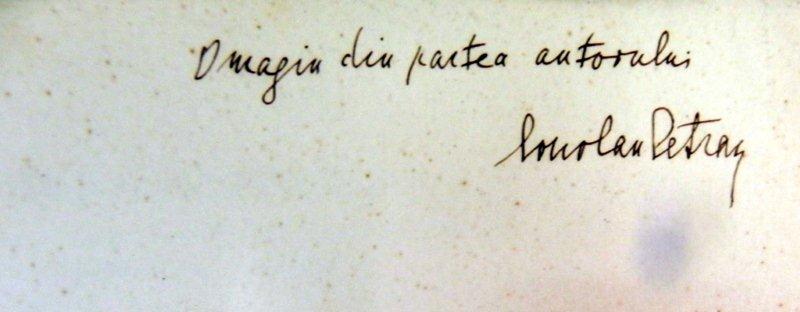 Omagiu din partea autorului
Coriolan Petran